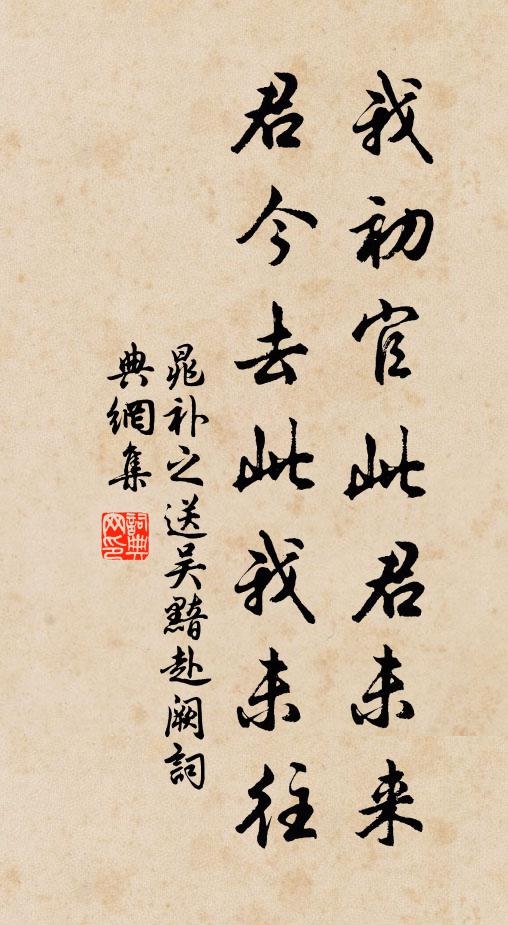 我初官此君未来
君今去此我未往
晁补之送吴黯赴阙詞
典網集
詞典网印